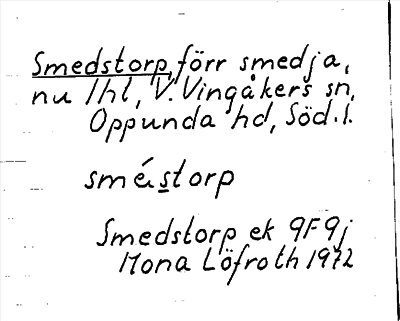 Smedstorp, förr smedja,
nu lhl, V. Vingåkers sn,
Oppunda hd, Söd. l.
smé̱storp
Smedstorp ek 9F9j
Mona Löfroth 1972